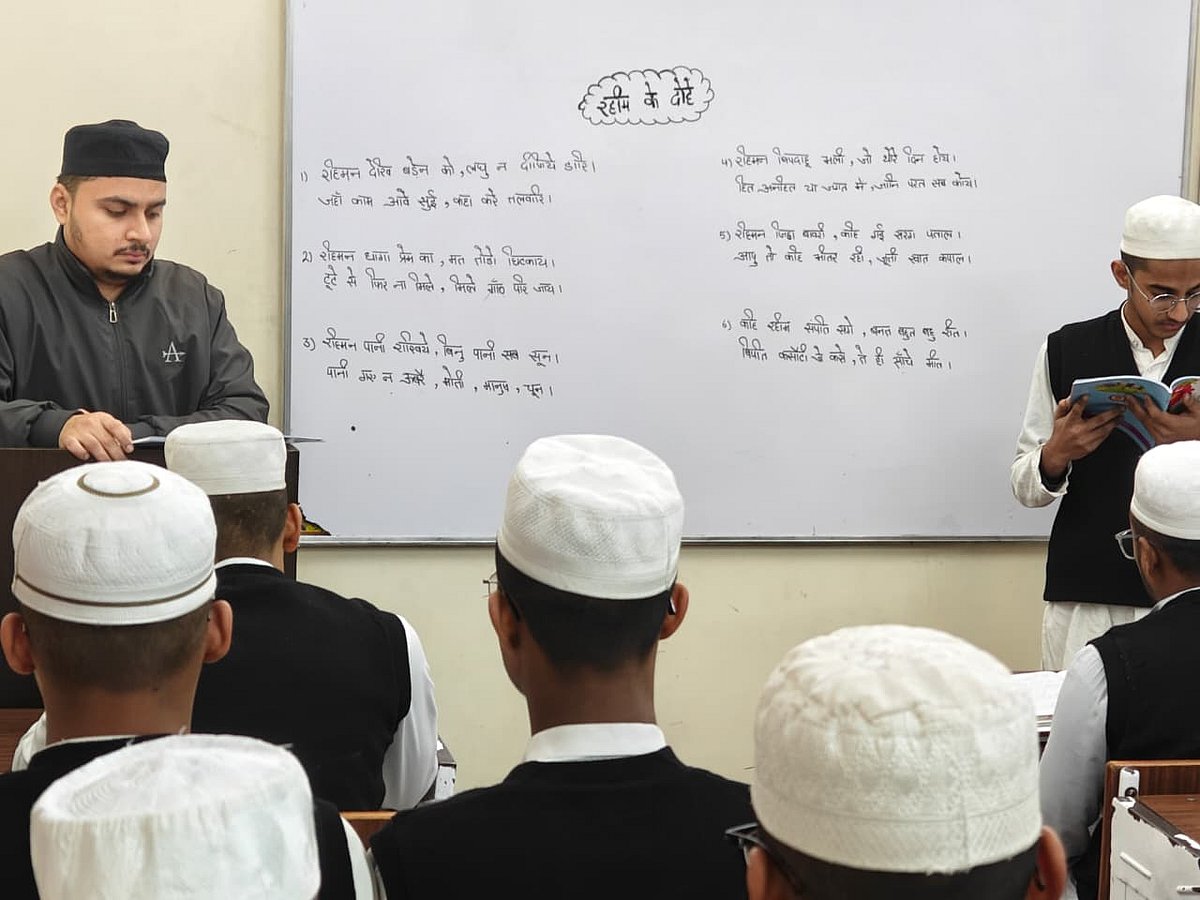 रहीम के दोहे
1) रहिमन देखि बड़ेन को, लघु न दीजिये डारि।
जहाँ काम आवे सुई, कहा करे तलवारि।
2) रहिमन धागा प्रेम का, मत तोड़ो छिटकाय।
टूटे से फिर ना मिले, मिले गाँठ परि जाय।
3) रहिमन पानी राखिये, बिनु पानी सब सून।
पानी गए न उबरै, मोती, मानुष, चून।
4) रहिमन विपदाहू भली, जो थोरे दिन होय।
हित अनहित या जगत में, जानि परत सब कोय।
5) रहिमन जिह्वा बावरी, कहि गई सरग पताल।
आपु तो कहि भीतर रही, जूती खात कपाल।
6) कहि रहीम संपति सगे, बनत बहुत बहु रीत।
विपति कसौटी जे कसे, ते ही साँचे मीत।
A